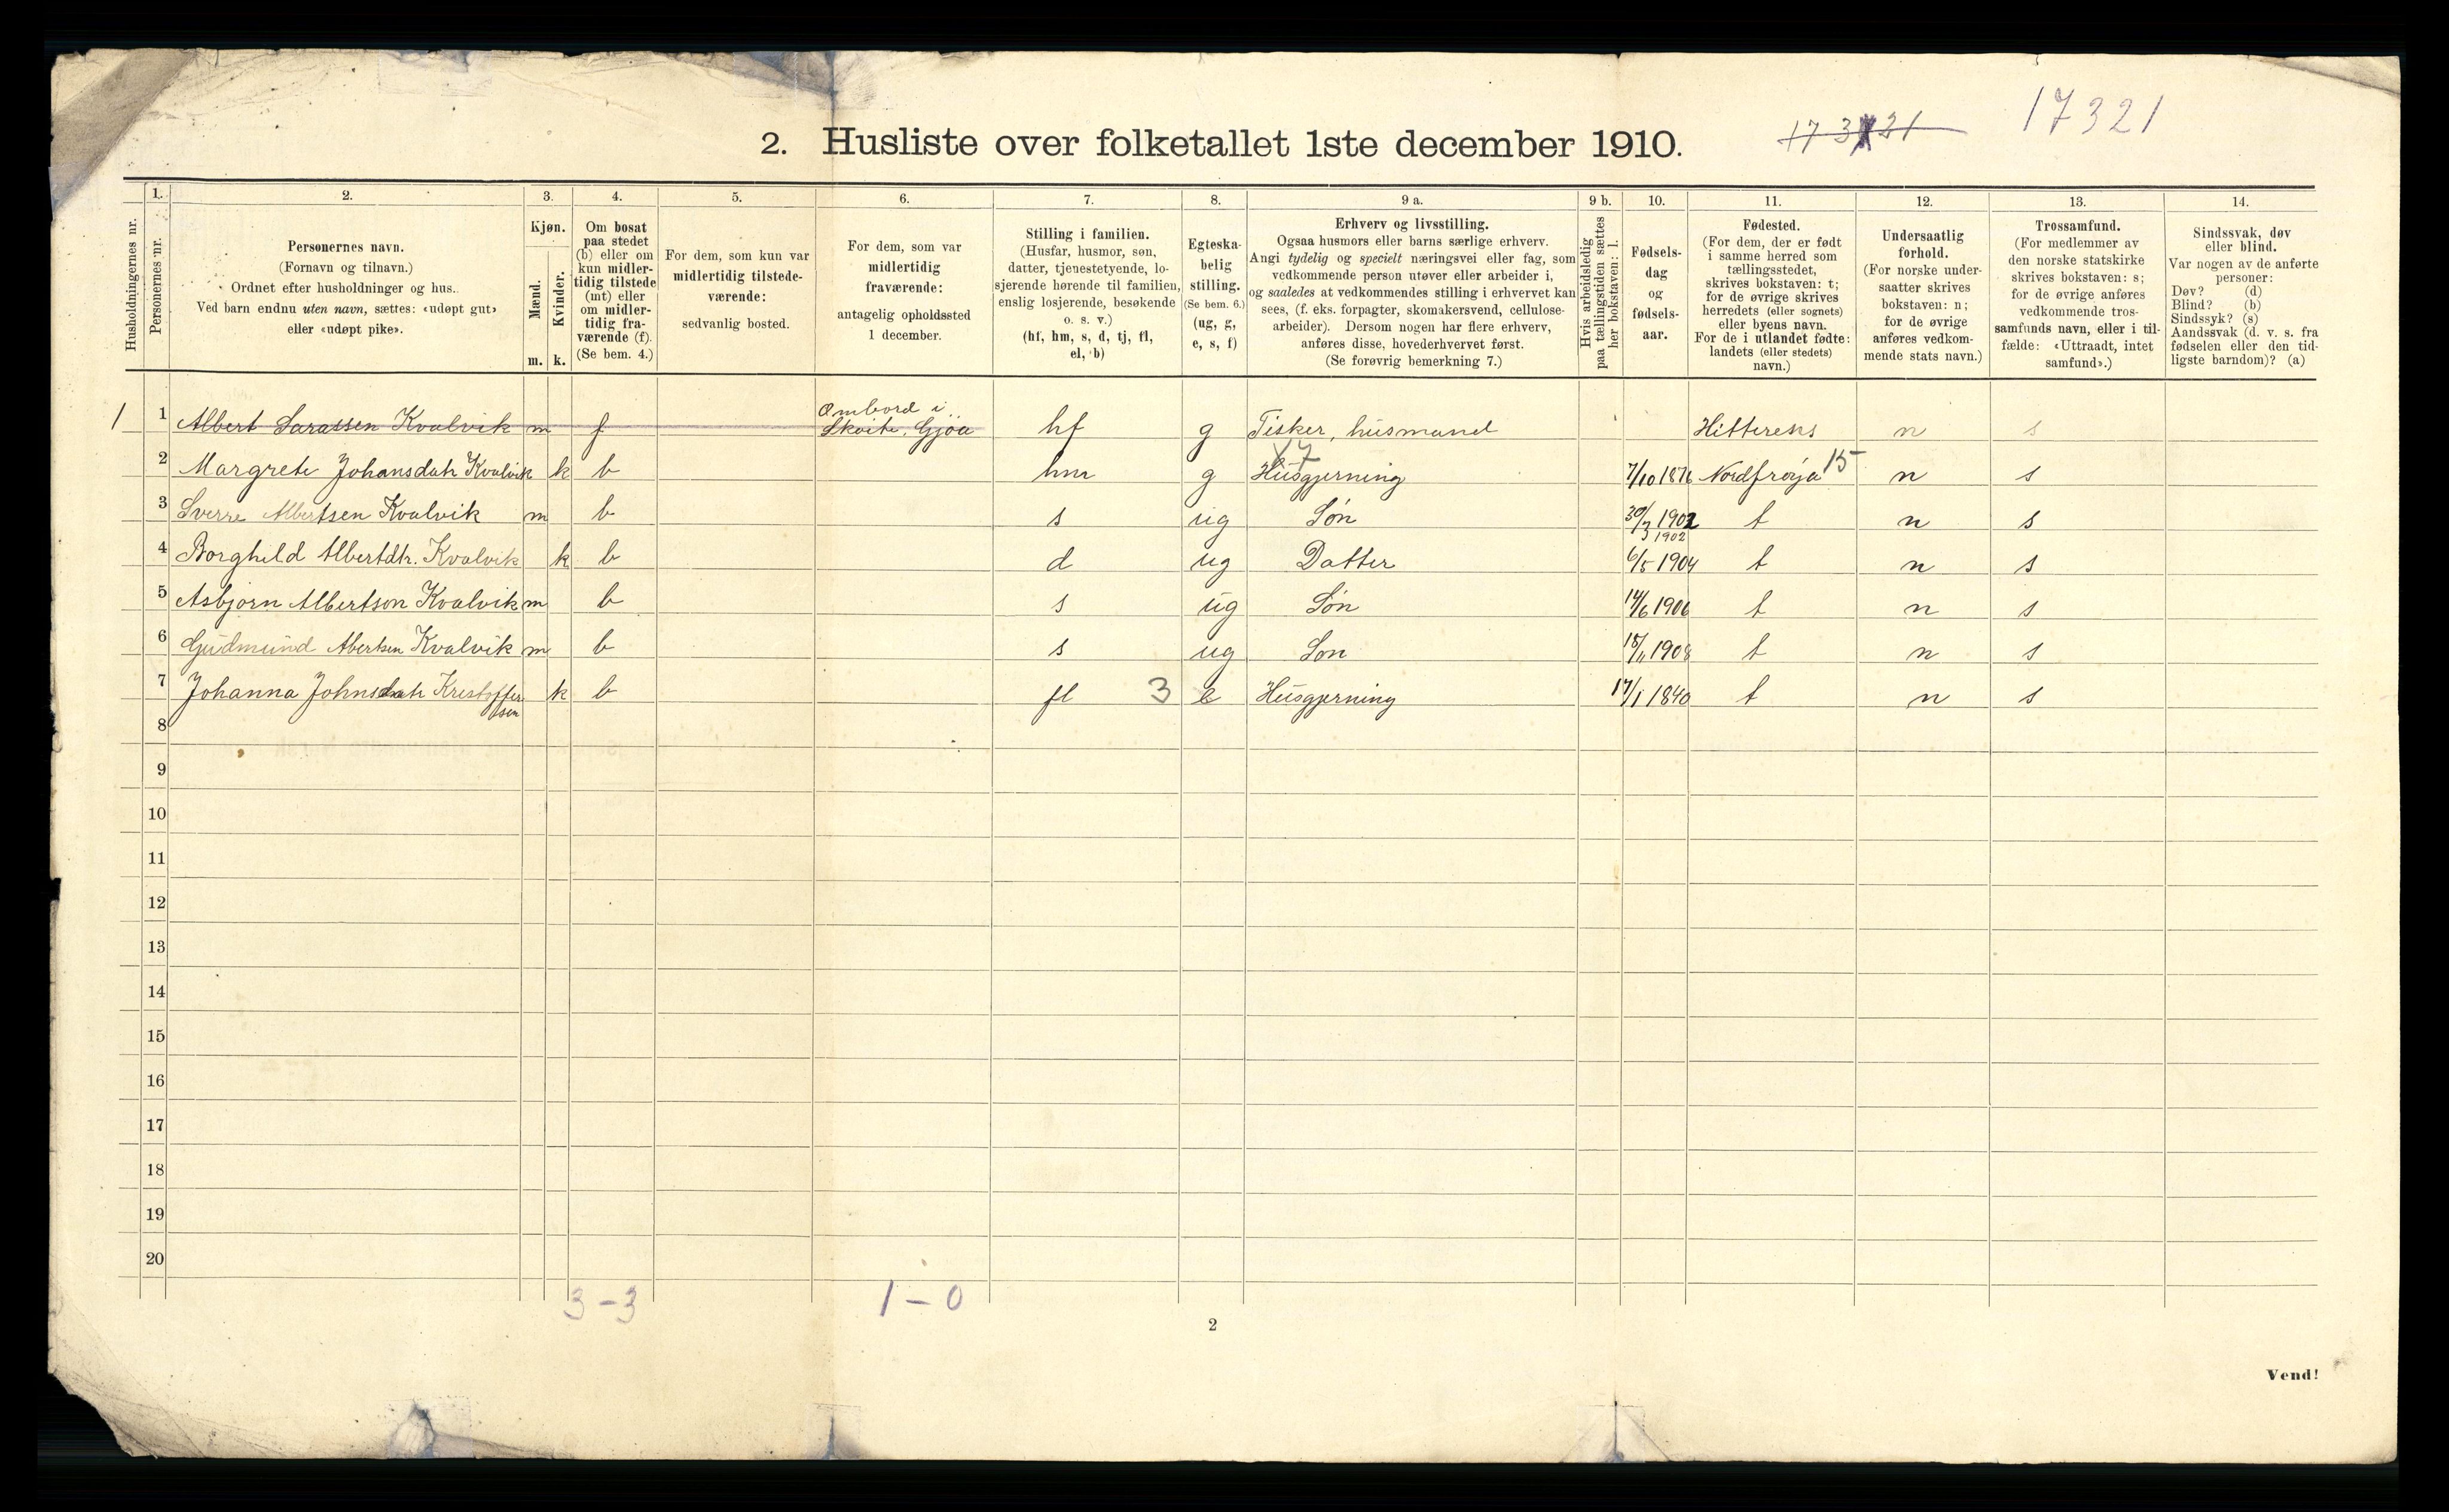 2. Husliste over folketallet 1ste december 1910.
17321
Husholdningernes nr.
1.
Personernes nr.
2.
Personernes navn.
(Fornavn og tilnavn.)
Ordnet efter husholdninger og hus.
Ved barn endnu uten navn, sættes: «udøpt gut»
eller «udøpt pike».
3.
Kjøn.
Mænd.
m.
Kvinder.
k.
4.
Om bosat
paa stedet
(b) eller om
kun midler-
tidig tilstede
(mt) eller
om midler-
tidig fra-
værende (f).
(Se bem. 4.)
5.
For dem, som kun var
midlertidig tilstede-
værende:
sedvanlig bosted.
6.
For dem, som var
midlertidig
fraværende:
antagelig opholdssted
1 december.
7.
Stilling i familien.
(Husfar, husmor, søn,
datter, tjenestetyende, lo-
sjerende hørende til familien,
enslig losjerende, besøkende
o. s. v.)
(hf, hm, s, d, tj, fl,
el, b)
8.
Egteska-
belig
stilling.
(Se bem. 6.)
(ug, g,
e, s, f)
9 a.
Erhverv og livsstilling.
Ogsaa husmors eller barns særlige erhverv.
Angi tydelig og specielt næringsvei eller fag, som
vedkommende person utøver eller arbeider i,
og saaledes at vedkommendes stilling i erhvervet kan
sees, (f. eks. forpagter, skomakersvend, cellulose-
arbeider). Dersom nogen har flere erhverv,
anføres disse, hovederhvervet først.
(Se forøvrig bemerkning 7.)
9 b.
Hvis arbeidsledig
paa tællingstiden sættes
her bokstaven: l.
10.
Fødsels-
dag
og
fødsels-
aar.
11.
Fødested.
(For dem, der er født
i samme herred som
tællingsstedet,
skrives bokstaven: t;
for de øvrige skrives
herredets (eller sognets)
eller byens navn.
For de i utlandet fødte:
landets (eller stedets)
navn.)
12.
Undersaatlig
forhold.
(For norske under-
saatter skrives
bokstaven: n;
for de øvrige
anføres vedkom-
mende stats navn.)
13.
Trossamfund.
(For medlemmer av
den norske statskirke
skrives bokstaven: s;
for de øvrige anføres
vedkommende tros-
samfunds navn, eller i til-
fælde: «Uttraadt, intet
samfund».)
14.
Sindssvak, døv
eller blind.
Var nogen av de anførte
personer:
Døv? (d)
Blind? (b)
Sindssyk? (s)
Aandssvak (d. v. s. fra
fødselen eller den tid-
ligste barndom)? (a)
Ombord i
1 1 Albert Larassen Kvalvik m f Skøite. Gjøa hf g Fisker, husmand Hitterens n s
17 15
2 Margrete Johansdatr Kvalvik k b hm g Husgjerning 7/10 1876 Nordfrøya n s
3 Sverre Albertsen Kvalvik m b s ug Søn 30/3 1902 t n s
1902
4 Borghild Albertdtr. Kvalvik k b d ug Datter 6/5 1904 t n s
5 Asbjørn Albertson Kvalvik m b s ug Søn 14/6 1906 t n s
6 Gudmund Abertsen Kvalvik m b s ug Søn 15/11 1908 t n s
7 Johanna Johnsdatr Krestoffer k b fl 3 e Husgjerning 17/1 1840 t n s
sen
8
9
10
11
12
13
14
15
16
17
18
19
20
3 - 3 1 - 0
2
Vend!